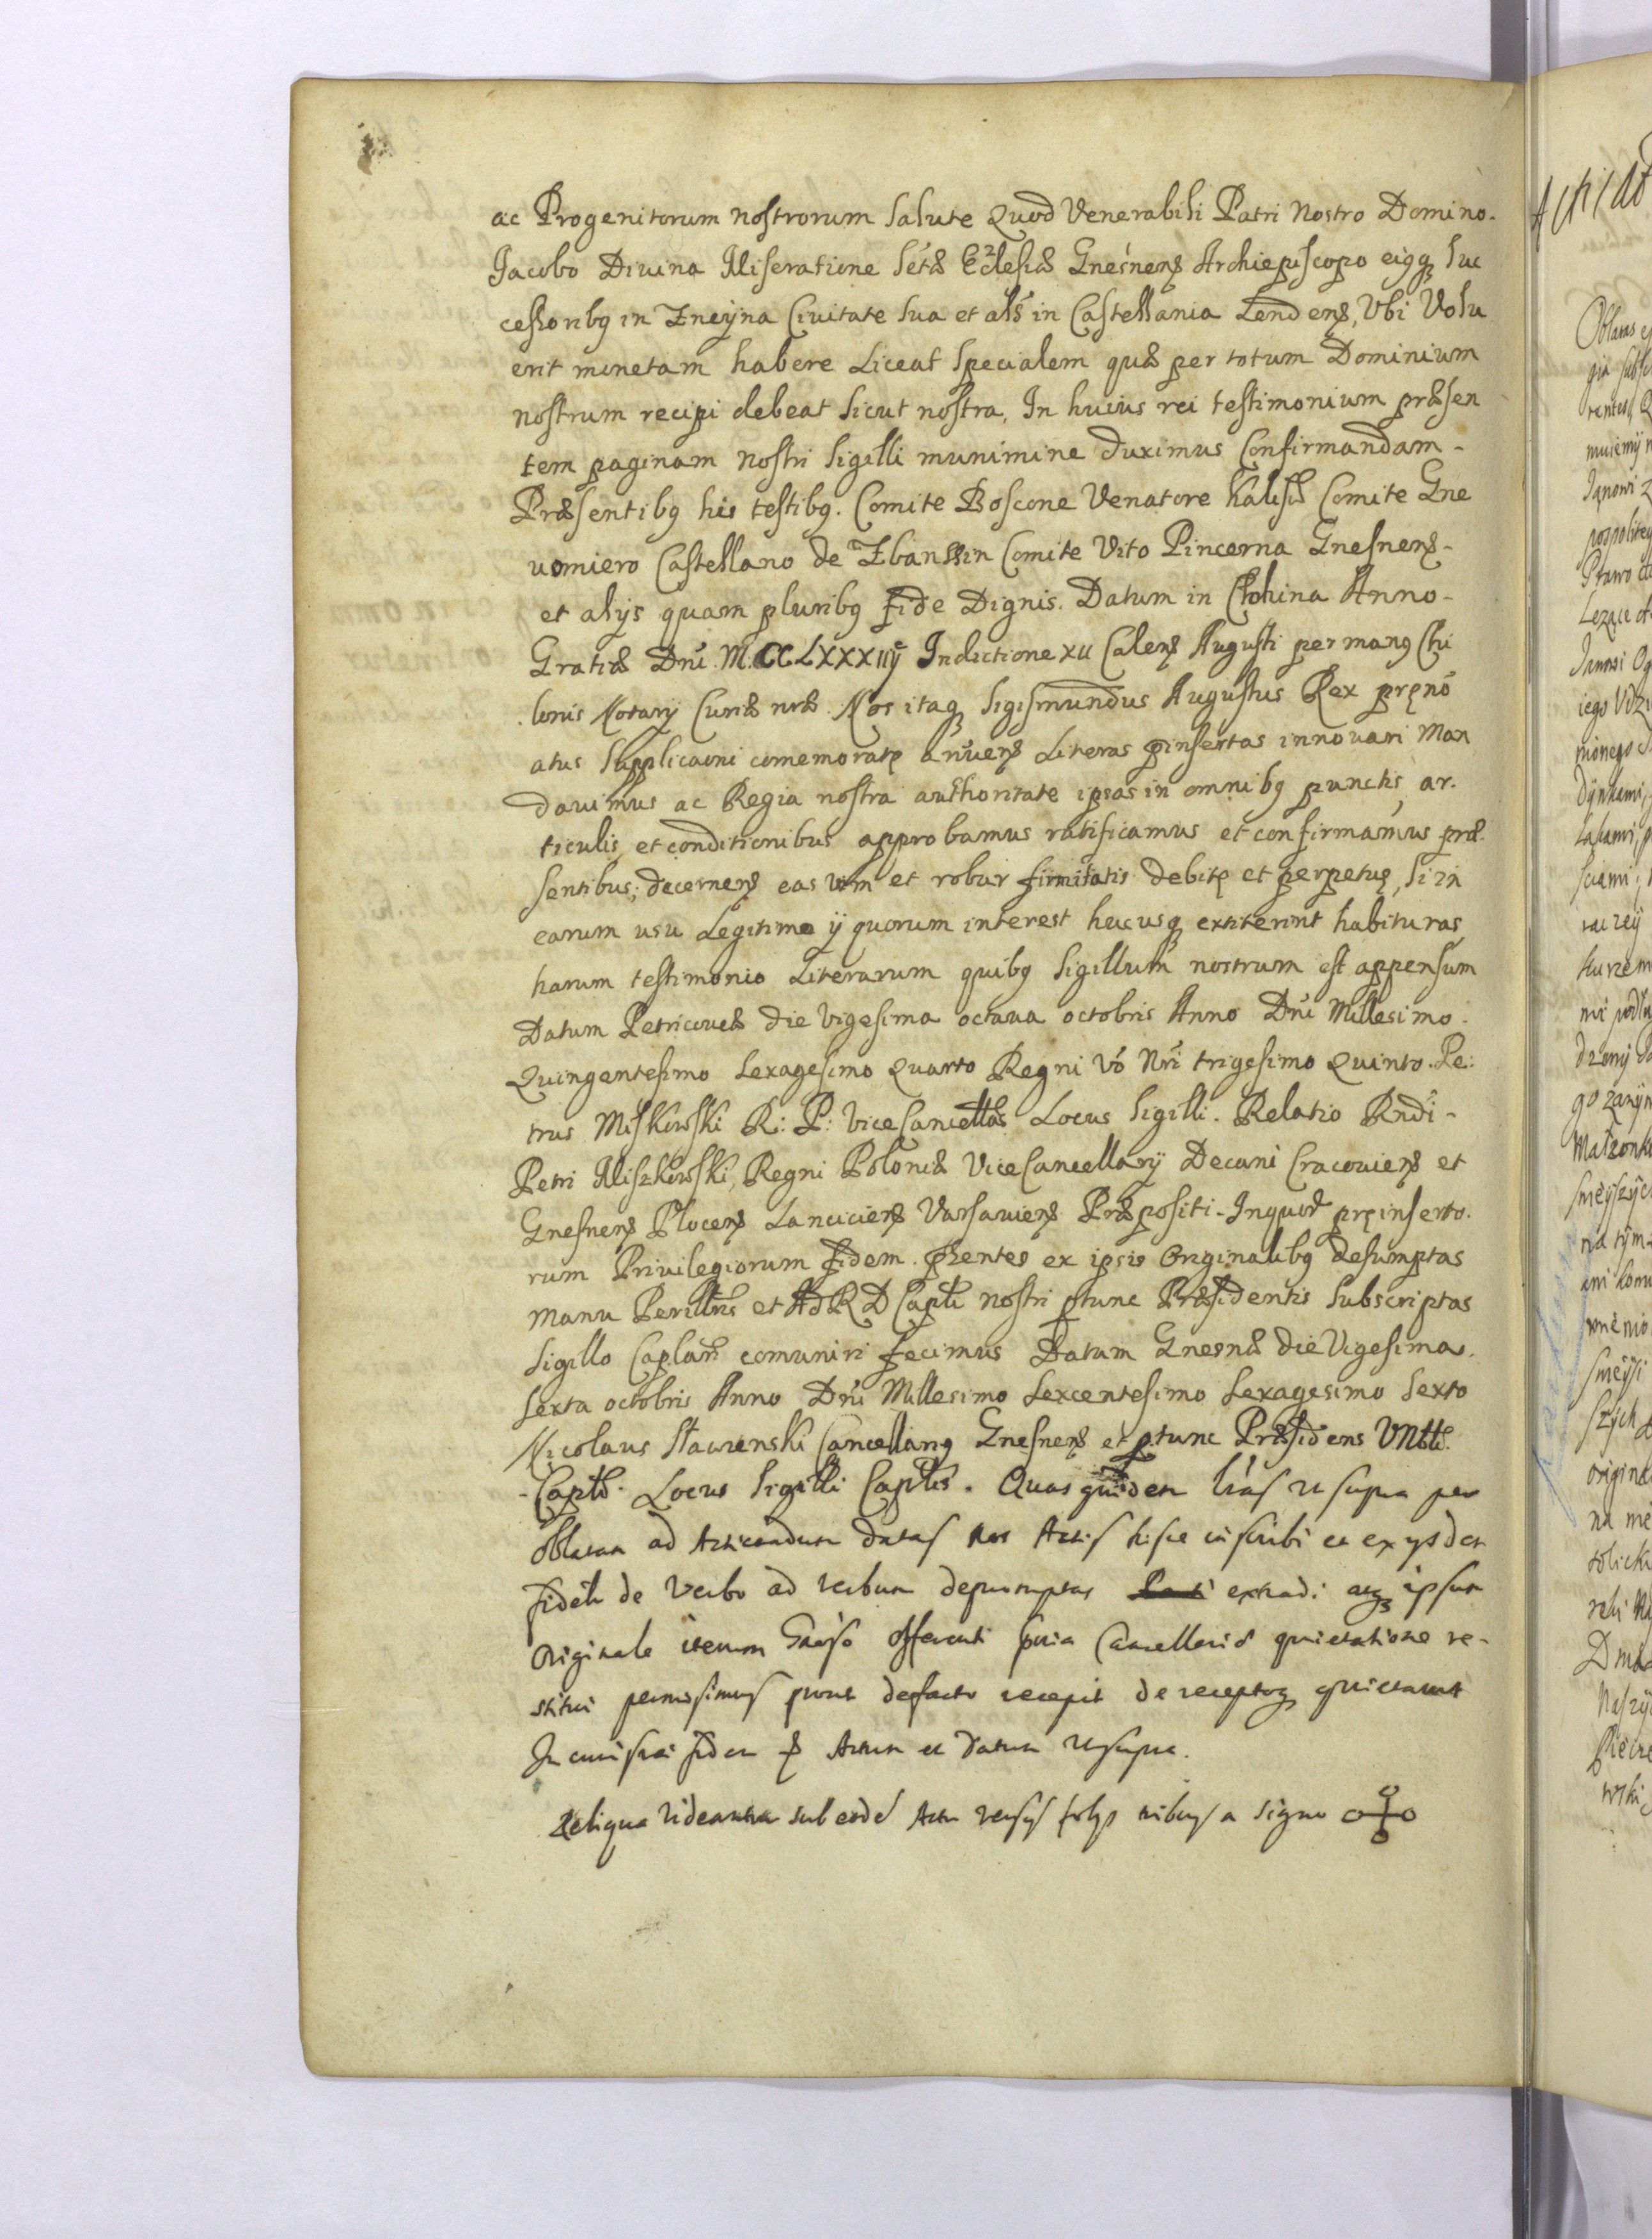 ac Progenitorum nostrorum Salute Quod Venerabili Patri Nostro Domino.
Jacobo Diuina Miseratione Sctæ Ecclesiæ Gnesnens Archiepiscopo eiqq Suc
cessoribq in Zneyna Ciuitate Sua et als in Castellania Lendens, Vbi Volu
erit monetam habere Liceat Specialem quæ per totum Dominium
nostrum recipi debeat Sicut nostra, In huius rei testimonium præsen
tem paginam Nostri Sigilli munimine Duximus Confirmandam -
Præsentibq his testibq. Comite Boscone Venatore Kalisiæ Comite Gne
uomiero Castellano de Zbanssin Comite Vito Pincerna Gnesnens -
et alijs quam pluribq Fide Dignis. Datum in Chohina Anno -
Gratiæ Dni. M.CCLXXXIIIJ Indictione XII Calens Augusti per manq Chi
lonis Notarij Curiæ nræ. Nos itaq Sigismundus Augustus Rex pręno
atus Supplicaoni comemoratę annuens Literas pinsertas innouari Man
dauimus ac Regia nostra authoritate ipsas in omnibq punctis, ar.
ticulis, et conditionibus approbamus ratificamus et confirmamus præ.
sentibus; decernens eas vim et robur firmitatis debitę et perpetuę, Si in
earum usu Legitimo ij quorum interest hucusq extiterint habituras
harum testimonio Literarum quibq Sigillum nostrum est appensum
Datum Petricouiæ die Vigesima octaua octobris Anno Dni Millesimo.
Quingentesimo Sexagesimo Quarto Regni Vo Nri trigesimo Quinto. Pe:
trus Miskowski R: P: ViceCancellas Locus Sigilli. Relatio Rndi -
Petri Miszkowski, Regni Poloniæ ViceCancellarij Decani Cracouiens et
Gnesnens Plocens Lanciciens Varsauiens Præpositi - Inquor pręinserto.
rum Privilegiorum fidem. pzentes ex ipsis Originalibq desumptas
manu Perilltris et AdR D Capli nostri ptunc Præsidentis Subscriptas
Sigillo Caplari comuniri fecimus Datum Gnesnæ die Vigesima.
Sexta octobris Anno Dni Millesimo Sexcentesimo Sexagesimo Sexto
Nicolaus Stawienski Cancellariq Gnesnens et p.tunc Præsidens
- Capli. Locus Sigilli Caplis. Quas quidem lras ut supra per
oblatam ad Acticandum datas nos Actis hisce inscribi et ex ijsdem
fideli de Verbo ad verbum depromptas extradi atq ipsum
Originale iterum offerenti Cancellariæ quietatione re-
stitui permisimus prout defacto recepit de receptoq quietauit
In cuius rei fidem Actum et Datum ut supra.
Reliqua Videantur sub eode Actu versis folijs tribus a Signo